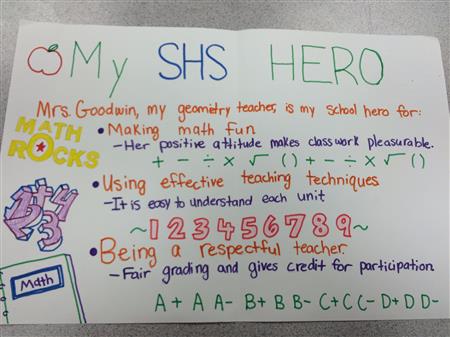 My SHS HERO
Mrs. Goodwin, my geometry teacher, is my school hero for:
MATH
ROCKS
• Making math fun
- Her positive attitude makes classwork pleasurable.
+ - ÷ × √ ( ) + - ÷ × √ ( )
• Using effective teaching techniques
- It is easy to understand each unit
1+4
2 3
~ 1 2 3 4 5 6 7 8 9 ~
• Being a respectful teacher
- Fair grading and gives credit for participation
Math
A+ A A- B+ B B- C+ C C- D+ D D-